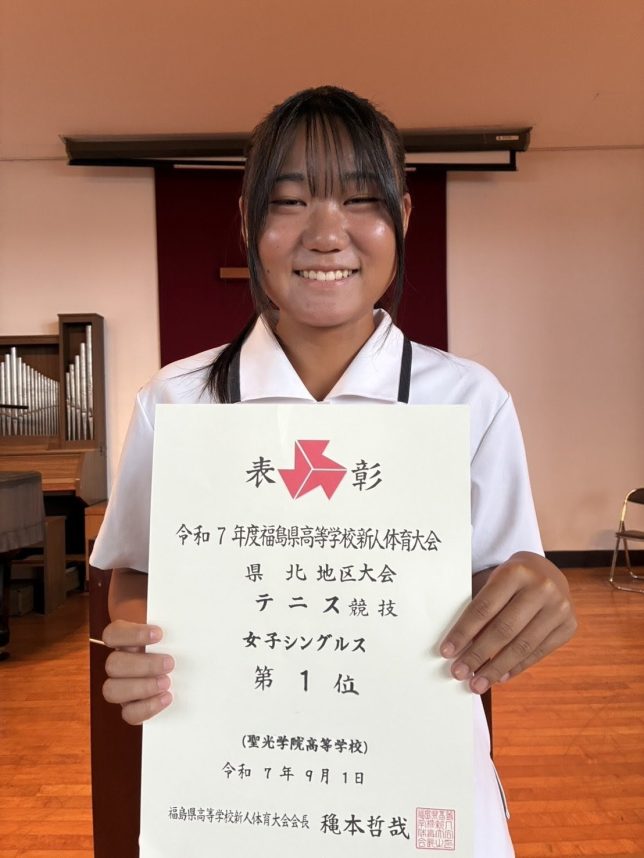 表彰
令和7年度福島県高等学校新人体育大会
県北地区大会
テニス競技
女子シングルス
第1位
(聖光学院高等学校)
令和7年9月1日
福島県高等学校新人体育大会会長 穐本哲哉